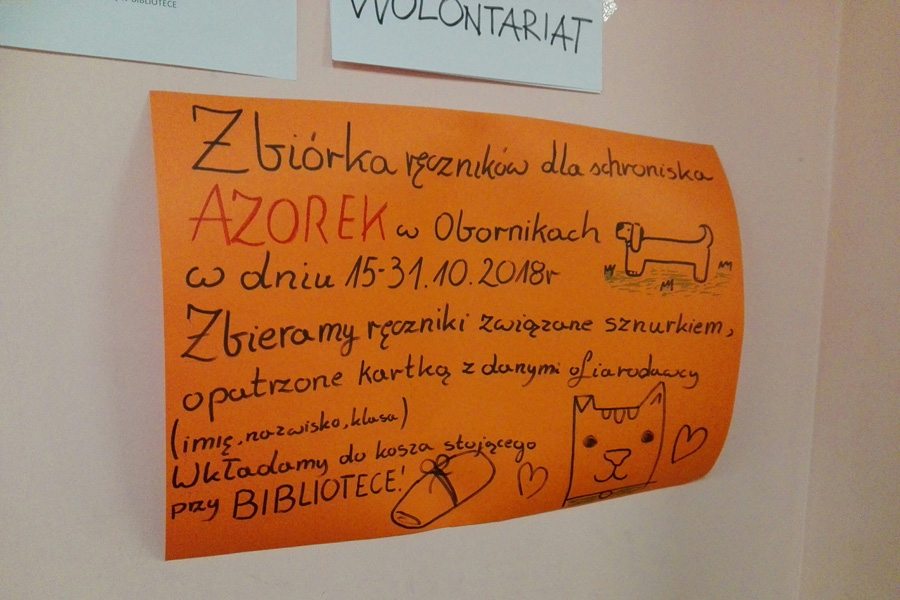 W BIBLIOTECE
WOLONTARIAT
Zbiórka ręczników dla schroniska
AZOREK w Obornikach
w dniu 15-31.10.2018r
Zbieramy ręczniki związane sznurkiem,
opatrzone kartką z danymi ofiarodawcy
(imię, nazwisko, klasa)
Wkładamy do kosza stojącego
przy BIBLIOTECE!